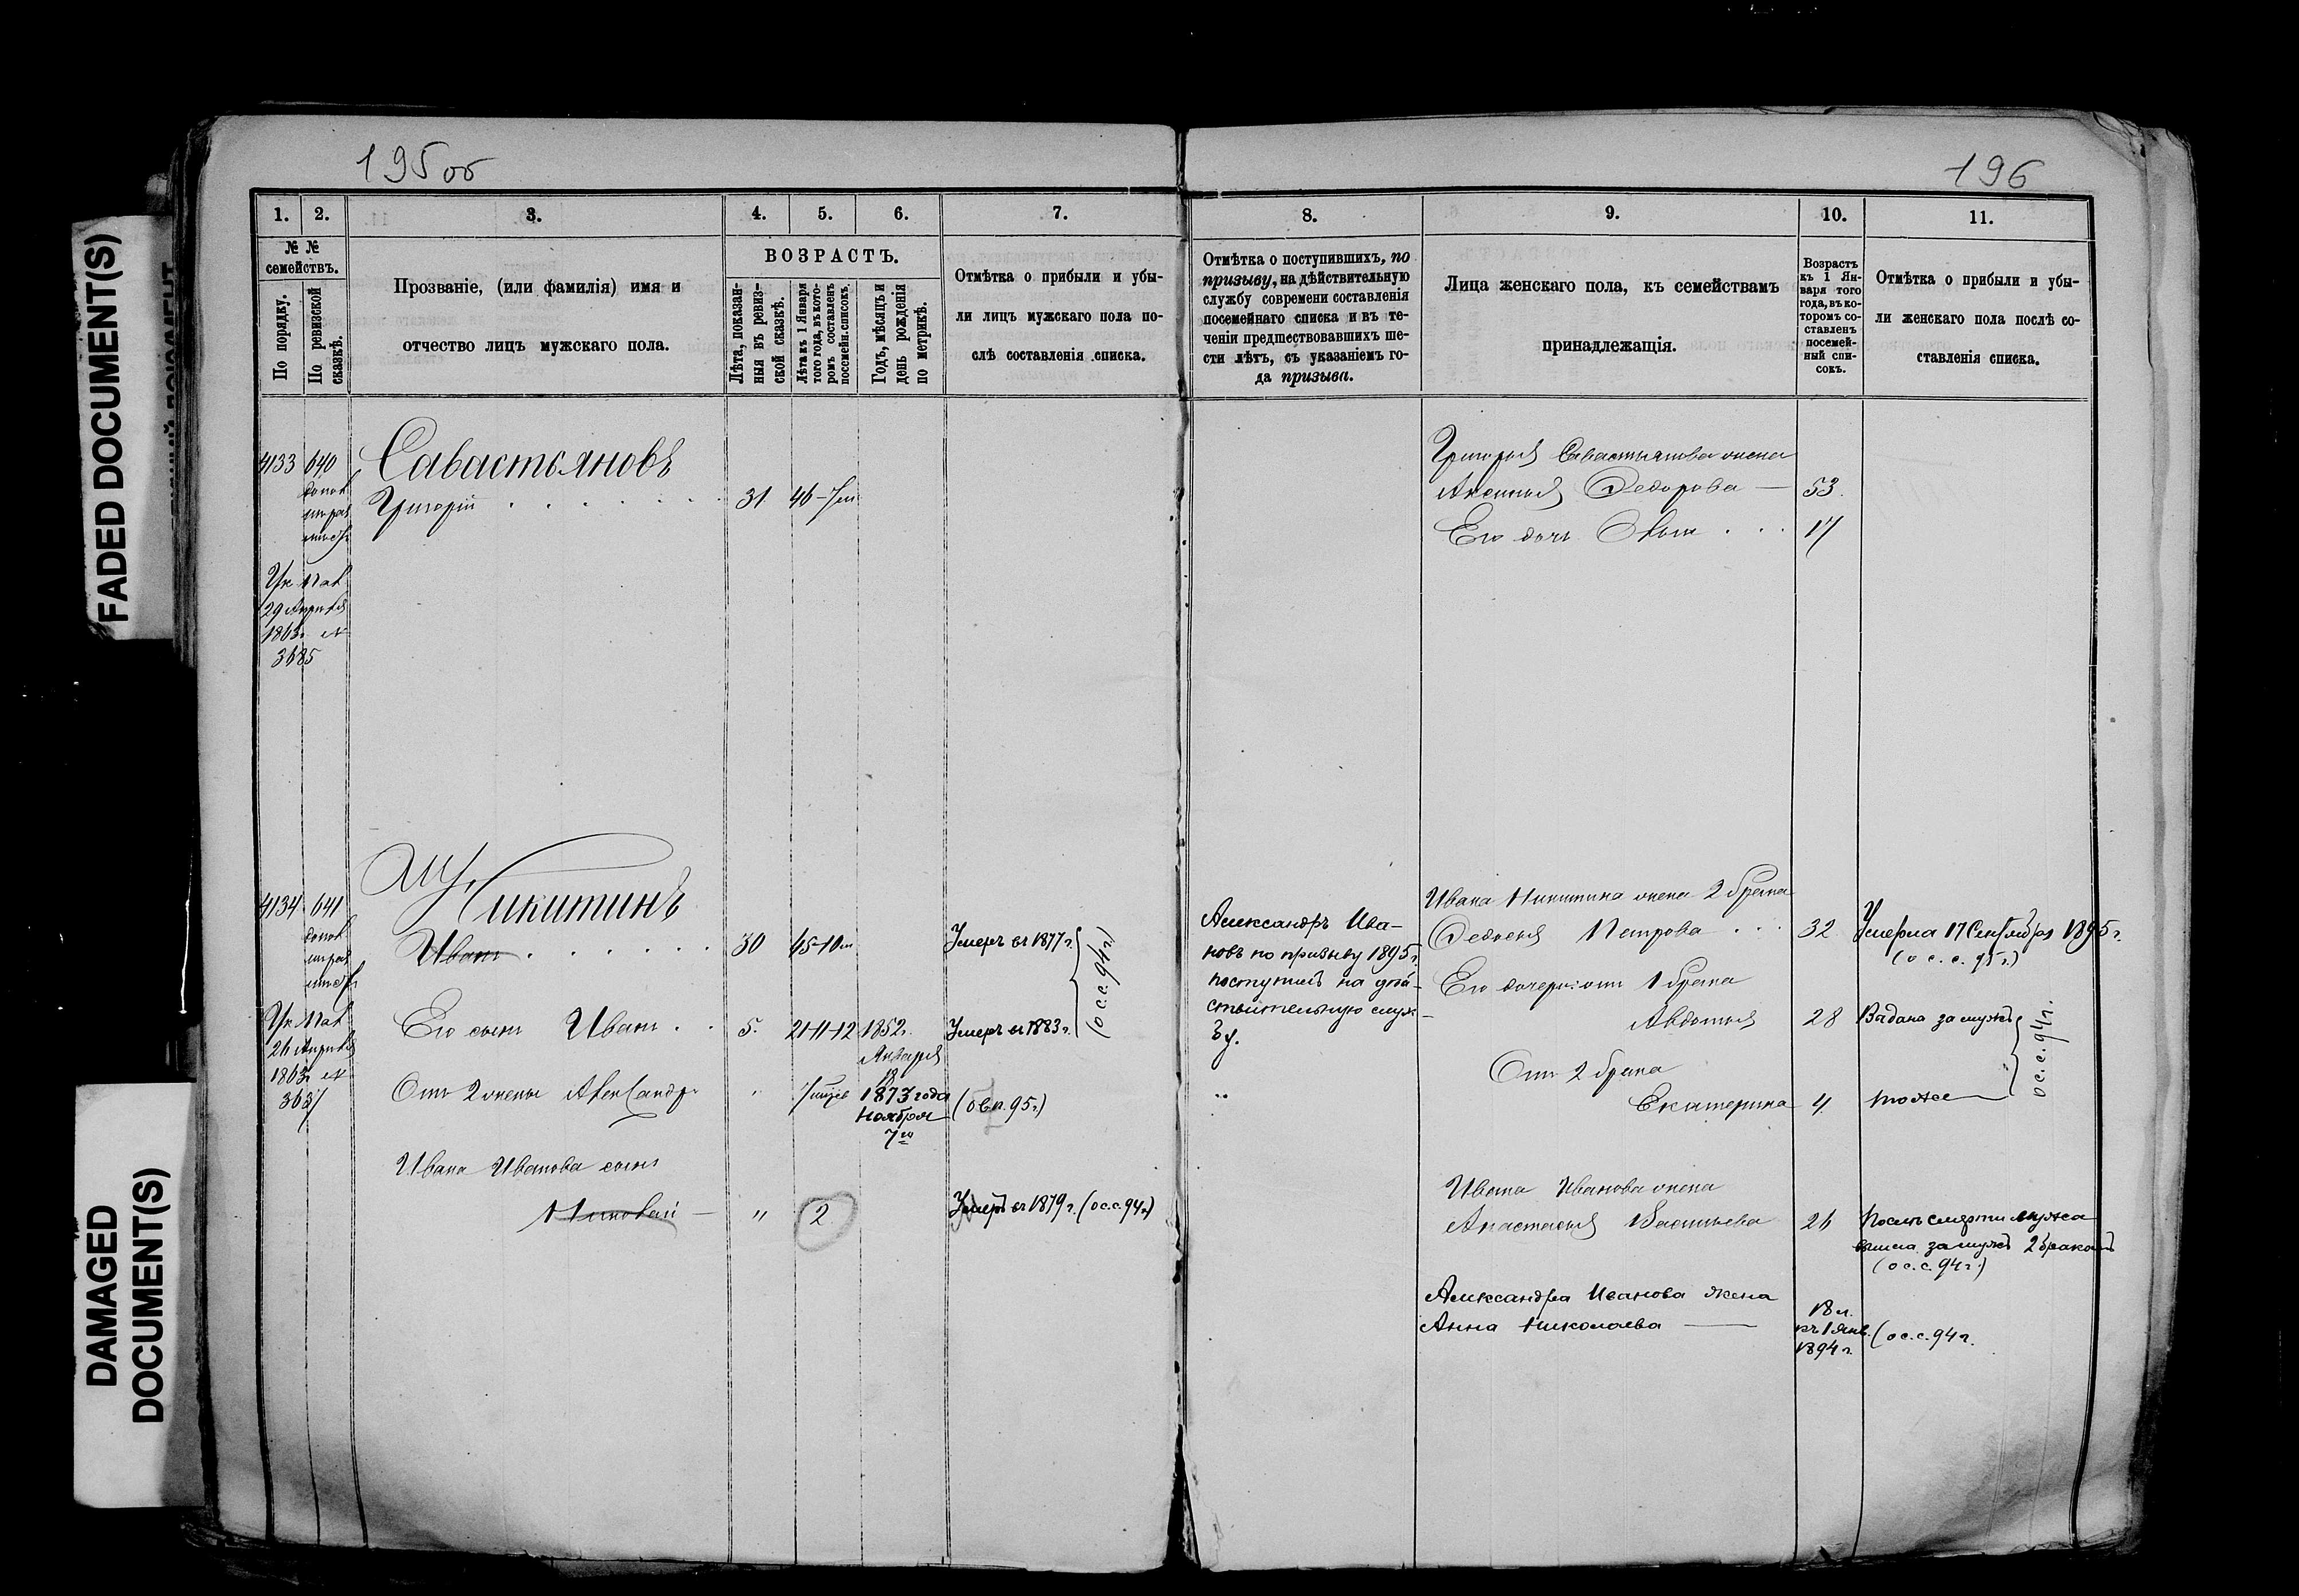 195 об
196
FADED DOCUMENT(S)
DAMAGED
DOCUMENT(S)
1.
2.
3.
4.
5.
6.
7.
№ №
семействъ.
По порядку.
По ревизской
сказкѣ.
Прозваніе, (или фамилія) имя и
отчество лицъ мужскаго пола.
ВОЗРАСТЪ.
Лѣта, показан-
ныя въ ревиз-
ской сказкѣ.
Лѣта къ 1 Января
того года, въ кото-
ромъ составленъ
посемейн. списокъ.
Годъ, мѣсяцъ и
день рожденія
по метрикѣ.
Отмѣтка о прибыли и убы-
ли лицъ мужскаго пола по-
слѣ составленія списка.
4133 640
Савастьяновъ
Григорій
31 46
29 Апрѣля
1863г. №
3685
4134 641
Никитинъ
Иванъ
30 45
Умеръ въ 1877 г.
Его сынъ Иванъ
5. 21-11-12 1852г.
Января
Умеръ въ 1883 г.
(о с.с. 94 г.)
26 Апрѣля
1863г. №
Отъ 2 жены Александръ
" 1873 года
Ноября
7го
Ивана Иванова сынъ
Николай
" 2
Умеръ въ 1879 г. (о с.с. 94 г.)
8.
9.
10.
11.
Отмѣтка о поступившихъ, по
призыву, на дѣйствительную
службу современи составленія
посемейнаго списка и въ те-
ченіи предшествовавшихъ ше-
сти лѣтъ, съ указаніемъ го-
да призыва.
Лица женскаго пола, къ семействамъ
принадлежащія.
Возрастъ
къ 1 Ян-
варя того
года, въ ко-
торомъ со-
ставленъ
посемей-
ный спи-
сокъ.
Отмѣтка о прибыли и убы-
ли женскаго пола послѣ со-
ставленія списка.
Григорья Савастьянова жена
Аксинья Федорова 53.
Его дочь 17
Александръ Ива-
новъ по призыву 1895г.
поступилъ на дѣй-
ствительную служ-
бу.
"
Ивана Никитина жена 2 брака
Федосья Петрова 32
Умерла 17 Сентября 1895 г.
(о с. с. 95 г.)
Его дочери: отъ 1 брака
Авдотья 28
Выдана замужъ
Отъ 2 брака
Екатерина 4
тоже
о с.с. 94 г.
Ивана Иванова жена
Анастасья Васильева 26
Послѣ смерти мужа
вышла замужъ 2 бракомъ
(о с.с. 94 г.)
Александра Иванова жена
Анна Николаева
18 л.
къ 1 Янв.
1894 г.
(о с.с. 94 г.